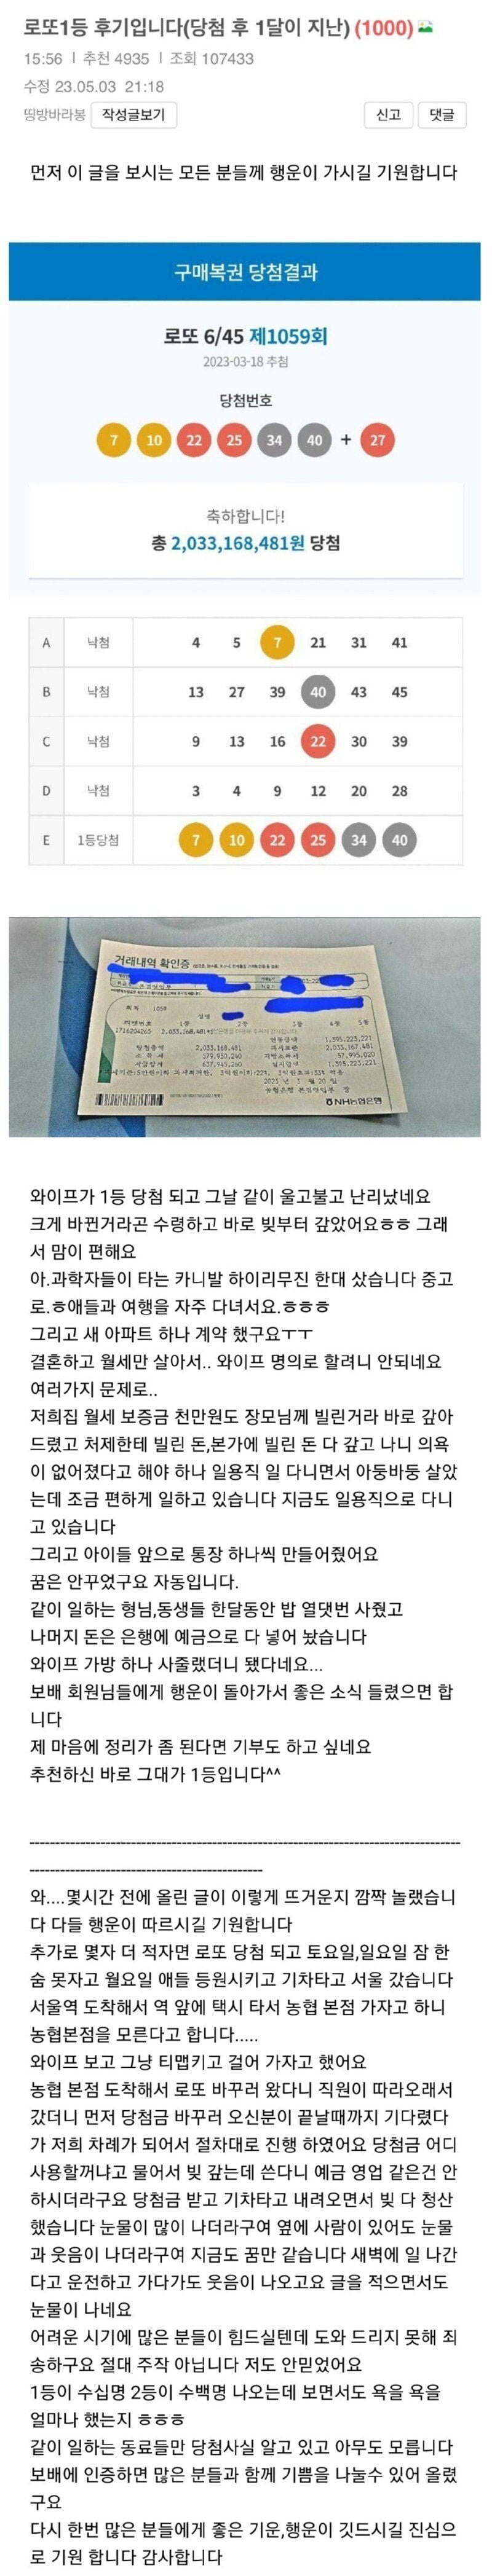 로또1등 후기입니다(당첨 후 1달이 지난) (1000)
15:56 | 추천 4935 | 조회 107433
수정 23.05.03 21:18
띵방바라봉 작성글보기 신고 댓글
먼저 이 글을 보시는 모든 분들께 행운이 가시길 기원합니다
구매복권 당첨결과
로또 6/45 제1059회
2023-03-18 추첨
당첨번호
7 10 22 25 34 40 + 27
축하합니다!
총 2,033,168,481원 당첨
A 낙첨 4 5 7 21 31 41
B 낙첨 13 27 39 40 43 45
C 낙첨 9 13 16 22 30 39
D 낙첨 3 4 9 12 20 28
E 1등당첨 7 10 22 25 34 40
거래내역 확인증
회차 1059
성명
1등 2등 3등 4등 5등
1716204265 2,033,168,481
1,395,223,221
당첨금액 2,033,168,481 2,033,167,481
소득세 579,950,240 지방소득세 57,995,020
637,945,260 1,395,223,221
2023 년 3 월 20 일
NH농협은행
와이프가 1등 당첨 되고 그날 같이 울고불고 난리났네요
크게 바뀐거라곤 수령하고 바로 빚부터 갚았어요ㅎㅎ 그래
서 맘이 편해요
아.과학자들이 타는 카니발 하이리무진 한대 샀습니다 중고
로.ㅎ애들과 여행을 자주 다녀서요.ㅎㅎㅎ
그리고 새 아파트 하나 계약 했구요ㅜㅜ
결혼하고 월세만 살아서.. 와이프 명의로 할려니 안되네요
여러가지 문제로..
저희집 월세 보증금 천만원도 장모님께 빌린거라 바로 갚아
드렸고 처제한테 빌린 돈,본가에 빌린 돈 다 갚고 나니 의욕
이 없어졌다고 해야 하나 일용직 일 다니면서 아둥바둥 살았
는데 조금 편하게 일하고 있습니다 지금도 일용직으로 다니
고 있습니다
그리고 아이들 앞으로 통장 하나씩 만들어줬어요
꿈은 안꾸었구요 자동입니다.
같이 일하는 형님,동생들 한달동안 밥 열댓번 사줬고
나머지 돈은 은행에 예금으로 다 넣어 놨습니다
와이프 가방 하나 사줄랬더니 됐다네요...
보배 회원님들에게 행운이 돌아가서 좋은 소식 들렸으면 합
니다
제 마음에 정리가 좀 된다면 기부도 하고 싶네요
추천하신 바로 그대가 1등입니다^^
와....몇시간 전에 올린 글이 이렇게 뜨거운지 깜짝 놀랬습니
다 다들 행운이 따르시길 기원합니다
추가로 몇자 더 적자면 로또 당첨 되고 토요일,일요일 잠 한
숨 못자고 월요일 애들 등원시키고 기차타고 서울 갔습니다
서울역 도착해서 역 앞에 택시 타서 농협 본점 가자고 하니
농협본점을 모른다고 합니다.....
와이프 보고 그냥 티맵키고 걸어 가자고 했어요
농협 본점 도착해서 로또 바꾸러 왔다니 직원이 따라오래서
갔더니 먼저 당첨금 바꾸러 오신분이 끝날때까지 기다렸다
가 저희 차례가 되어서 절차대로 진행 하였어요 당첨금 어디
사용할꺼냐고 물어서 빚 갚는데 쓴다니 예금 영업 같은건 안
하시더라구요 당첨금 받고 기차타고 내려오면서 빚 다 청산
했습니다 눈물이 많이 나더라구여 옆에 사람이 있어도 눈물
과 웃음이 나더라구여 지금도 꿈만 같습니다 새벽에 일 나간
다고 운전하고 가다가도 웃음이 나오고요 글을 적으면서도
눈물이 나네요
어려운 시기에 많은 분들이 힘드실텐데 도와 드리지 못해 죄
송하구요 절대 주작 아닙니다 저도 안믿었어요
1등이 수십명 2등이 수백명 나오는데 보면서도 욕을 욕을
얼마나 했는지 ㅎㅎㅎ
같이 일하는 동료들만 당첨사실 알고 있고 아무도 모릅니다
보배에 인증하면 많은 분들과 함께 기쁨을 나눌수 있어 올렸
구요
다시 한번 많은 분들에게 좋은 기운,행운이 깃드시길 진심으
로 기원 합니다 감사합니다